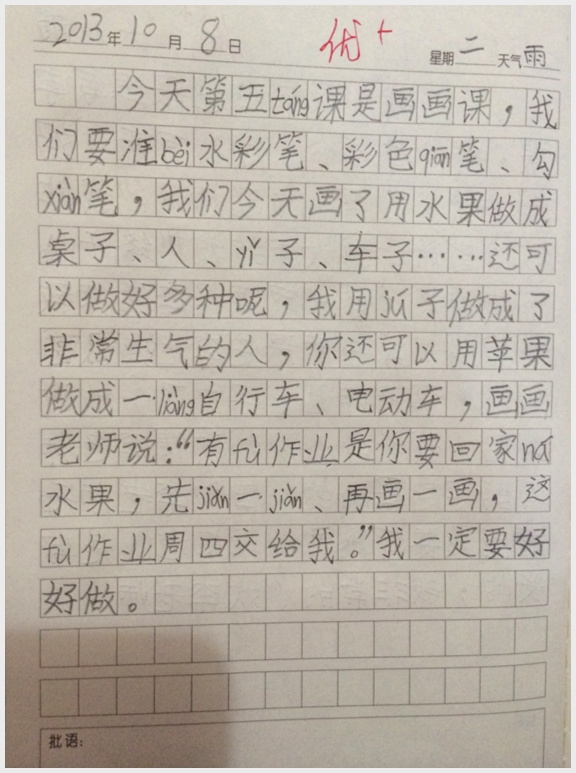 2013年10月8日 优+ 星期二 天气雨
今天第五táng课是画画课，我
们要准bèi水彩笔、彩色qiān笔、勾
xiàn笔，我们今天画了用水果做成
桌子、人、yǐ子、车子……还可
以做好多种呢，我用jú子做成了
非常生气的人，你还可以用苹果
做成一liàng自行车、电动车，画画
老师说：“有fù作业是你要回家ná
水果，先jiǎn一jiǎn、再画一画，这
fù作业周四交给我。”我一定要好
好做。
批语：